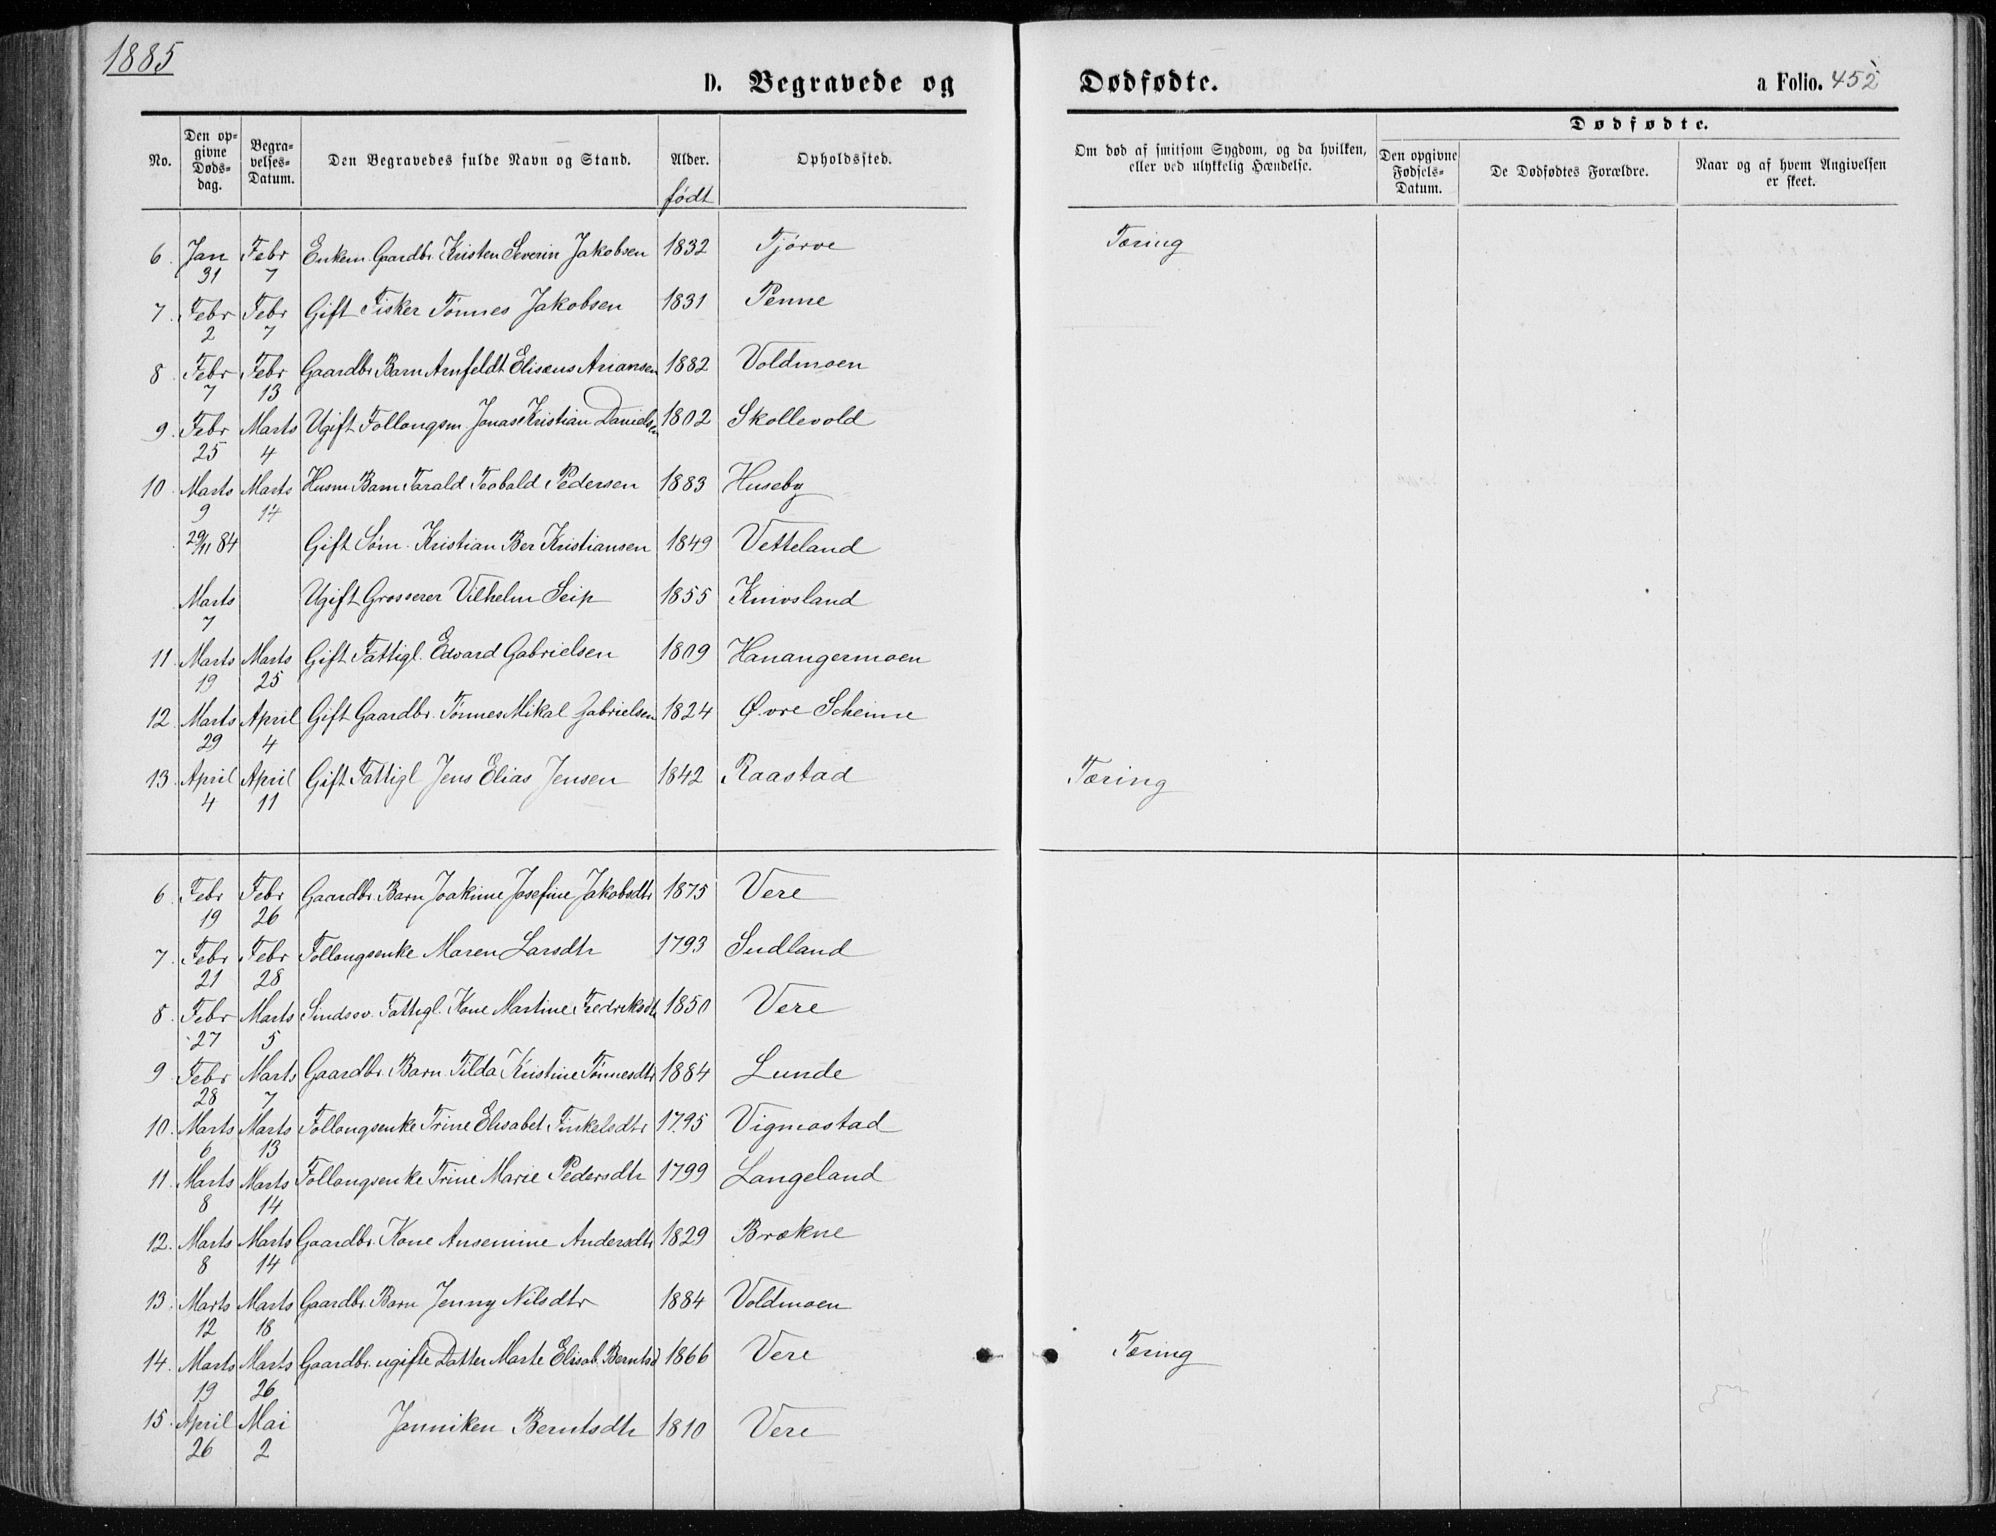 1885
D. Begravede og Dødfødte. a Folio. 452
No. Den opgivne Dødsdag. Begravelses-Datum. Den Begravedes fulde Navn og Stand. Alder. født Opholdssted. Om død af smitsom Sygdom, og da hvilken, eller ved ulykkelig Hændelse. Dødfødte. Den opgivne Fødsels-Datum. De Dødfødtes Forældre. Naar og af hvem Angivelsen er skeet.
6. Jan 31 Febr 7 Enkem. Gaardbr. Kristen Severin Jakobsen 1832 Tjørve Tæring
7. Febr 2 Febr 7 Gift Fisker Tønnes Jakobsen 1831 Penne
8. Febr 7 Febr 13 Gaardbr. Barn Arnfeldt Elisæus Ariansen 1882 Voldmoen
9. Febr 25 Marts 4 Ugift Follougsm. Jonas Kristian Danielsen 1802 Skollevold
10. Marts 9 Marts 14 Husm Barn Tarald Teobald Pedersen 1883 Huseby
29/11 84 Gift Søm. Kristian Ber Kristiansen 1849 Vetteland
Marts 7 Ugift Grosserer Vilhelm Seip 1855 Knivsland
11. Marts 19 Marts 25 Gift Fattigl. Edvard Gabrielsen 1809 Hanangermoen
12. Marts 29 April 4 Gift Gaardbr. Tønnes Mikal Gabrielsen 1824 Øvre Scheime
13. April 4 April 11 Gift Fattigl Jens Elias Jensen 1842 Raastad Tæring
6 Febr 19 Febr 26 Gaardbr. Barn Joakime Josefine Jakobsdtr 1875 Vere
7. Febr 21 Febr 28 Follougsenke Maren Larsdtr 1793 Sudland
8. Febr 27 Marts 5 Sindssv. Fattigl. Kone Martine Fredriksdtr 1850 Vere
9 Febr 28 Marts 7 Gaardbr. Barn Tilda Kristine Tønnesdtr 1884 Lunde
10. Marts 6 Marts 13 Follougsenke Trine Elisabet Tinkelsdtr 1795 Vigmostad
11. Marts 8 Marts 14 Follougsenke Trine Marie Pedersdtr 1799 Langeland
12. Marts 8 Marts 14 Gaardbr. Kone Ansemine Andersdtr 1829 Brækne
13. Marts 12 Marts 18 Gaardbr. Barn Jenny Nilsdtr 1884 Voldmoen
14. Marts 19 Marts 26 Gaardbr. ugifte Datter Marte Elisab. Berntsd 1866 Vere Tæring
15. April 26 Mai 2 Janniken Berntsdtr 1810 Vere